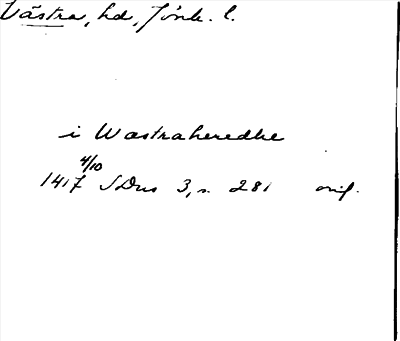 Västra, hd, Jönk. l.
i Wastraheredhe
4/10
1417 SDns 3, s. 281 orig.